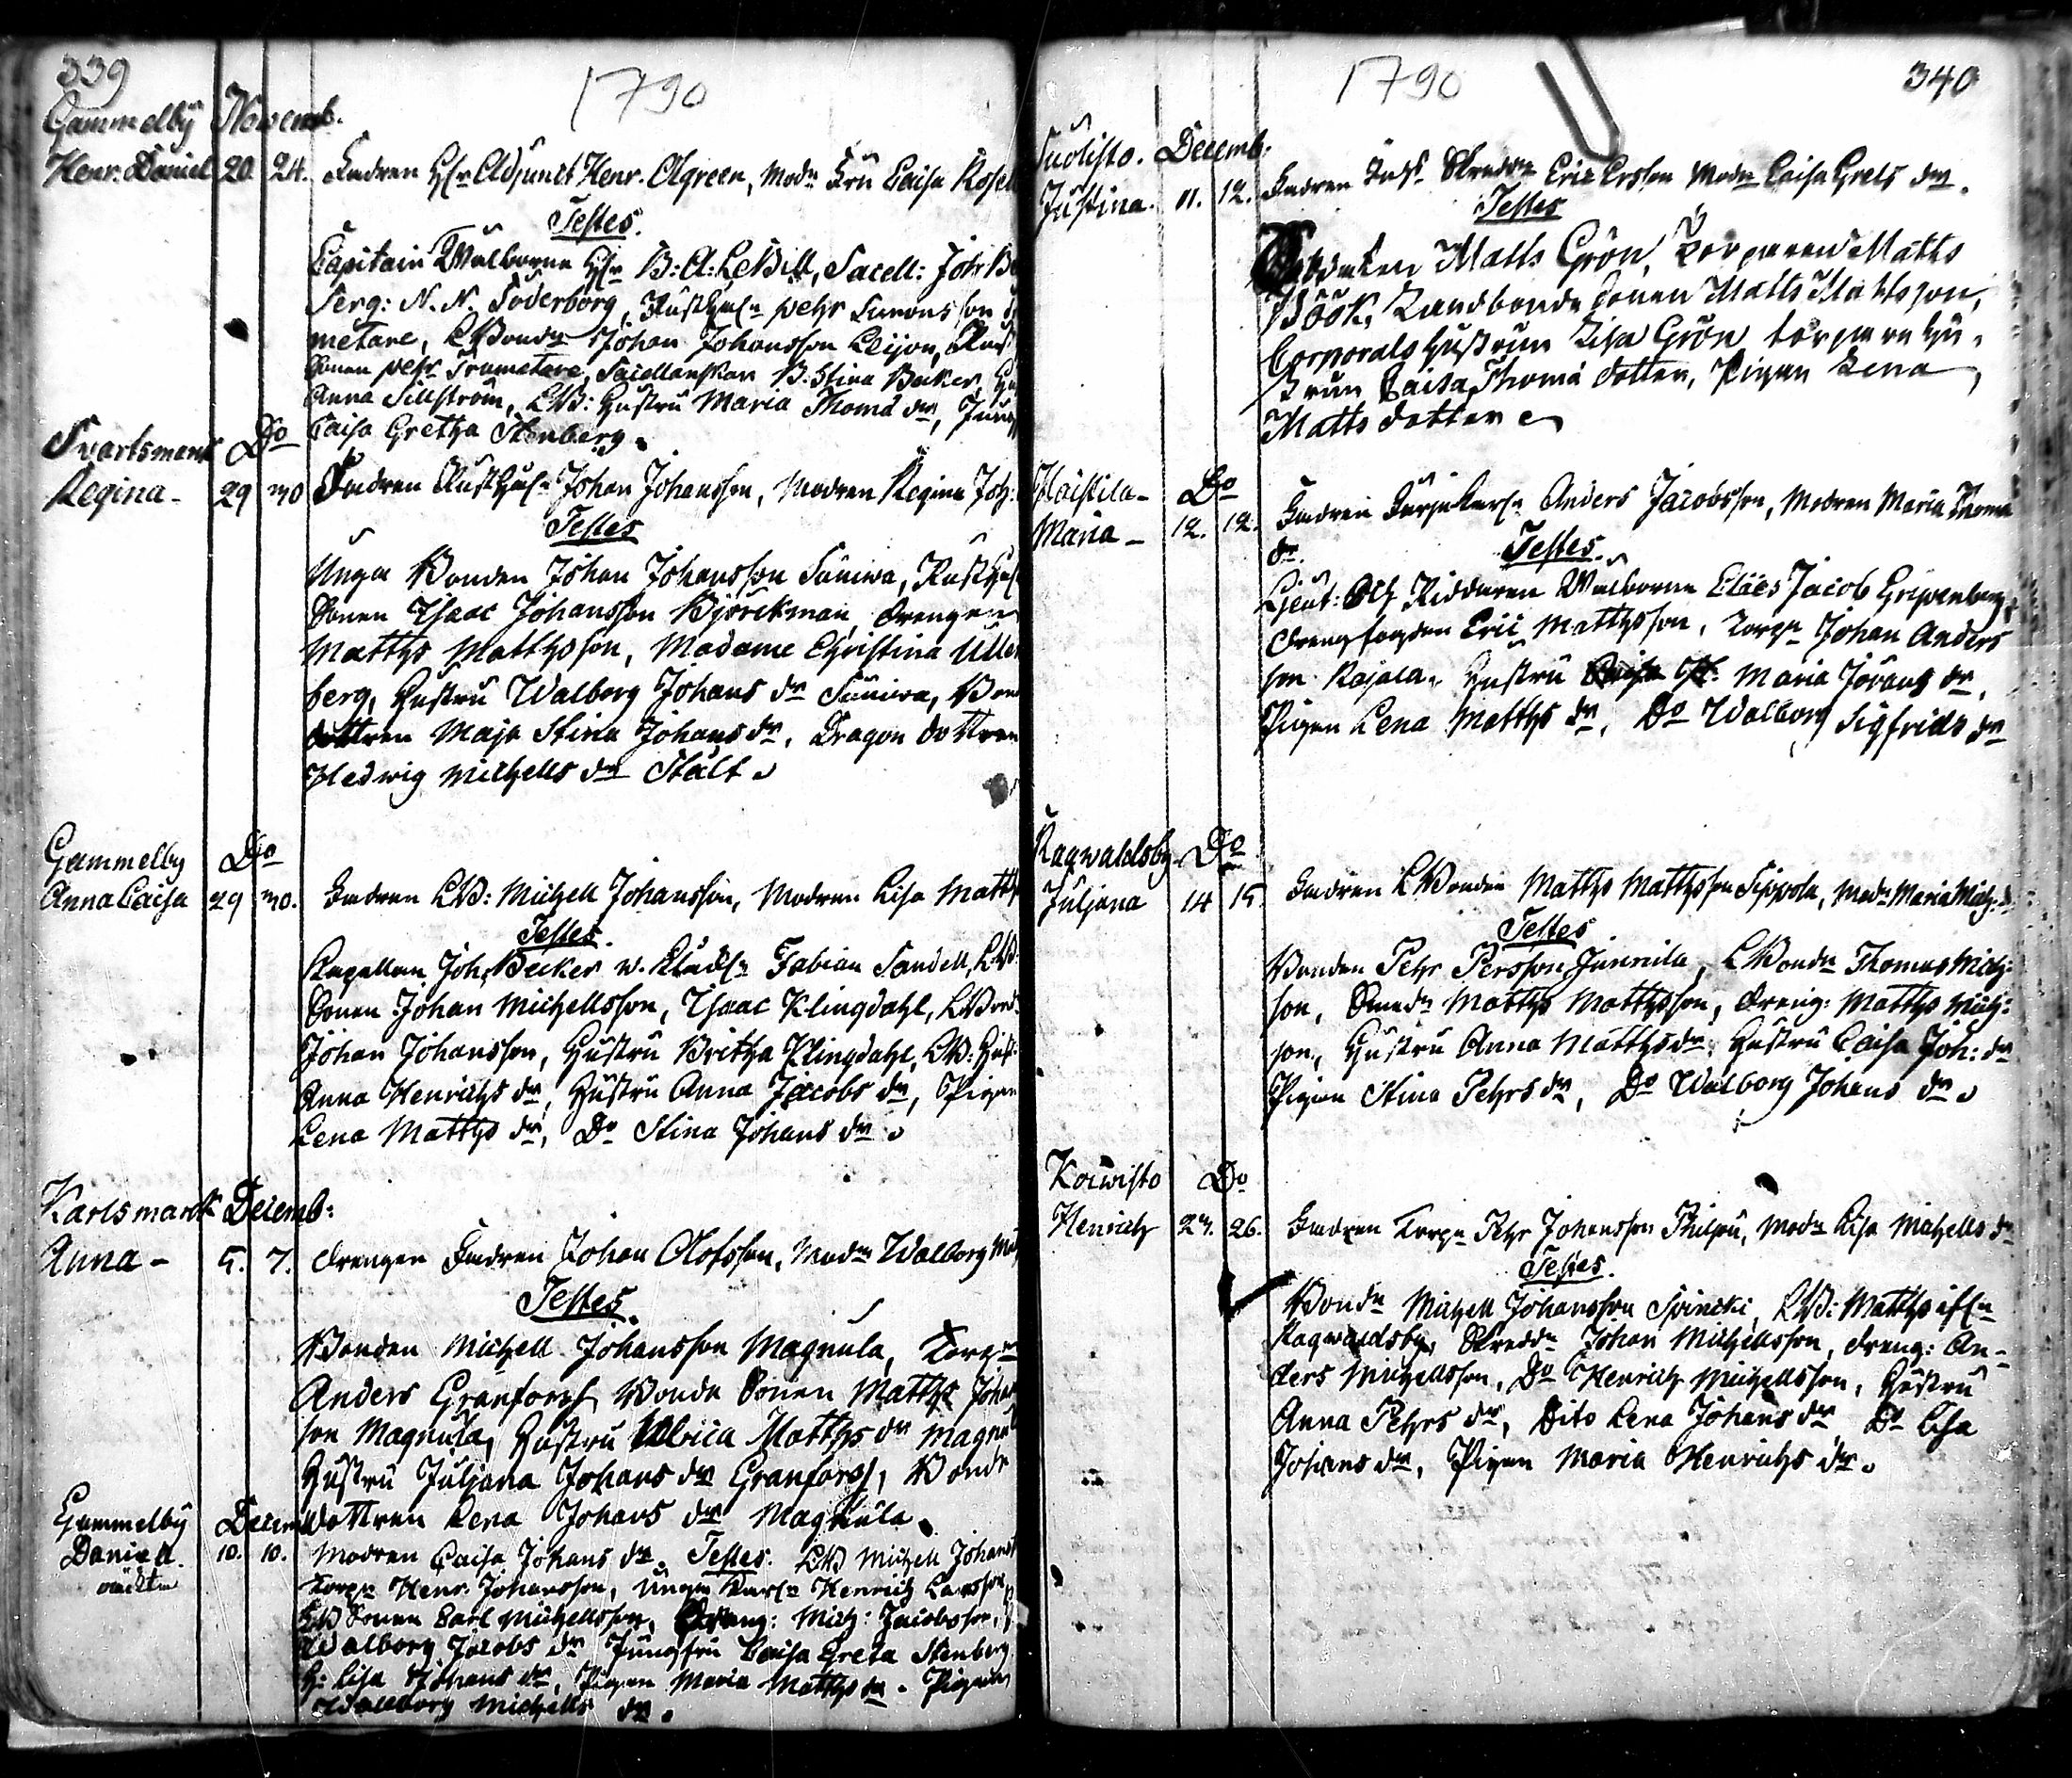 339
1790
Gammelby Novemb.
Henr. Daniel 20. 24. Fadren H:r Adjunct Henr. Algreen, Mod:n Fru Caisa Rosel
Testes.
Capitain Wälborne H:r B: A: LeBell, Sacell: Joh: Be
Serg: N. N. Söderborg, Rusth:n Pehr Simonsson
metare, LBond:n Johan Johansson Leijon, Rust
Sonen Pehr Trumetare, Sacellanskan B. Stina Becker,
Anna Sillström, LB: Hustru Maria Thomæ d:r, Jung
Caisa Gretha Stenberg.
Svartsmark D:o
Regina - 29 30 Fadren Rusth:n Johan Johansson, Modren Regina Joh:
Testes
Unga Bonden Johan Johansson Suniwa, Rusth:
Sonen Isaac Johansson Björckman, drengen
Matths Matthsson, Madame Christina Ullen
berg, Hustru Walborg Johans d:r Suniwa, Bon
dottren Maja Stina Johans d:r, Dragon dottren
Hedwig Michells d:r Stålt
Gammelby D:o
Anna Caisa 29 30. Fadren LB: Michell Johansson, Modren Lisa Matths
Testes.
Kapellan Joh: Becker Fabian Sandell, LB:
Sonen Johan Michellsson, Isaac Klingdahl, LBond:
Johan Johansson, Hustru Britha Klingdahl, LB: Hust:
Anna Henrichs d:r, Hustru Anna Jacobs d:r, Pigan
Lena Matths d:r, D:o Stina Johans d:r
Karlsmark Decemb:
Anna - 5. 7. drengen Fadren Johan Olofsson, Mod:n Walborg
Testes.
Bonden Michell Johansson Magnula, Torp:n
Anders Granforss Bonde Sonen Matths Johans
son Magnula, Hustru Ulrica Matths d:r Magnul
Hustru Juljana Johans d:r Granforss, Bonde
dottren Lena Johans d:r Magnula.
Gammelby Decem
Daniel 10. 10. Modren Caisa Johans d:r. Testes. LB Michell Johans
oäckta Torp:n Henr. Johansson, Unga Karl:n Henrich Larsson,
LB Sonen Carl Michellsson, Dreng: Mich: Jacobsson,
Walborg Jacobs d:r Jungfru Caisa Greta Stenberg
H: Lisa Johans d:r, Pigan Maria Matths d:r. Pigan
Walborg Michells d:r.
1790
340
Suolisto. Decemb:
Justina. 11. 12. Fadren Skredd:n Eric Ersson Mod:n Caisa Grels d:r.
Testes
Soldaten Matts Grön, Torparen Matts
Böök, Landbonde Sonen Matts Mattsson,
Corporals Hustrun Lisa Grön, torpare hu-
strun Caisa Thomæ dotter, Pigan Lena
Matts dotter
Haistila - D:o
Maria - 12. 12. Fadren Anders Jacobsson, Modren Maria Thomæ
d:r. Testes.
Lieut: Och Riddaren Wälborne Claës Jacob Gripenberg,
drengfogden Eric Matthsson, Torp:n Johan Anders
son Rajala, Hustru Maria Jörans d:r,
Pigan Lena Matths d:r, D:o Walborg Sigfrids d:r
Ragwaldsby D:o
Juljana 14 15. Fadren LBonden Matths Matthsson Sippola, Mod:n Maria Mich: d:
Testes
Bonden Pehr Persson Junnila, LBond:n Thomas Mich:
son, Matths Matthsson, dreng: Matths Mich:
son, Hustru Anna Matths d:r, Hustru Caisa Joh: d:r
Pigan Stina Pehrs d:r, D:o Walborg Johans d:r
Kouwisto D:o
Henrich 23. 26. Fadren Torp:n Pehr Johansson, Mod:n Lisa Michells d:r
Testes.
Bond:n Michell Johansson, LB: Matths
Ragwaldsby, Skredd:n Johan Michellsson, dreng: An-
ders Michellsson, D:o Henrich Michellsson, Hustru
Anna Pehrs d:r, Dito Lena Johans d:r, D:o Lisa
Johans d:r, Pigan Maria Henrichs d:r.